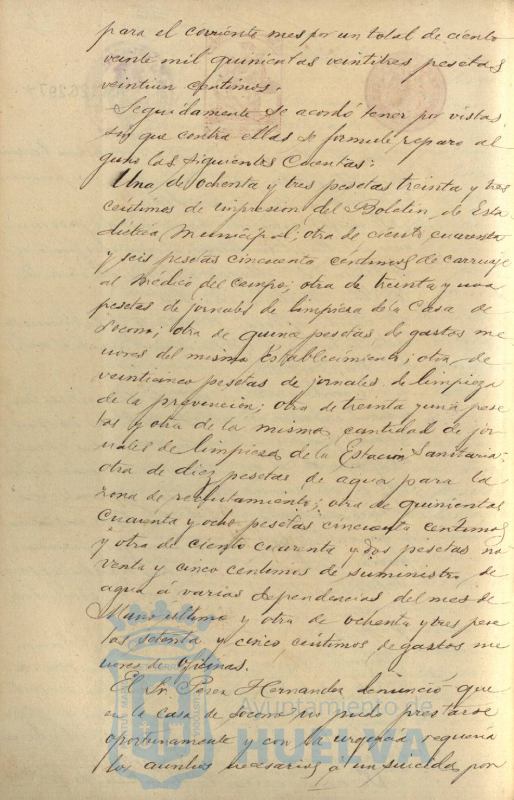 para el corriente mes por un total de ciento
veinte mil quinientas veintitres pesetas
veintiun centimos.
Seguidamente se acordó tener por vistas
sin que contra ellas se formule reparo al
guno las siguientes Cuentas:
Una de ochenta y tres pesetas treinta y tres
centimos de impresion del Boletin de Esta
distica Municipal; otra de ciento cuarenta
y seis pesetas cincuenta centimos de carruaje
al Médico del campo; otra de treinta y una
pesetas de jornales de limpieza de la Casa de
Socorro; otra de quince pesetas de gastos me
nores del mismo Establecimiento; otra de
veinticinco pesetas de jornales de limpieza
de la prevencion; otra de treinta y una pese
tas y otra de la misma cantidad de jor
nales de limpiesa de la Estacion Sanitaria;
otra de diez pesetas de agua para la
zona de reclutamiento; otra de quinientas
cuarenta y ocho pesetas cincuenta centimos
y otra de ciento cuarenta y dos pesetas no
venta y cinco centimos de suministro de
agua á varias dependencias del mes de
Marzo último y otra de ochenta y tres pese
tas setenta y cinco céntimos de gastos me
nores de Oficinas.
El Sr. Perez Hernandez denunció que
en la casa de Socorro no pudo prestarse
oportunamente y con la urgencia requeria
los auxilios necesarios á un suicida por
Ayuntamiento de
HUELVA